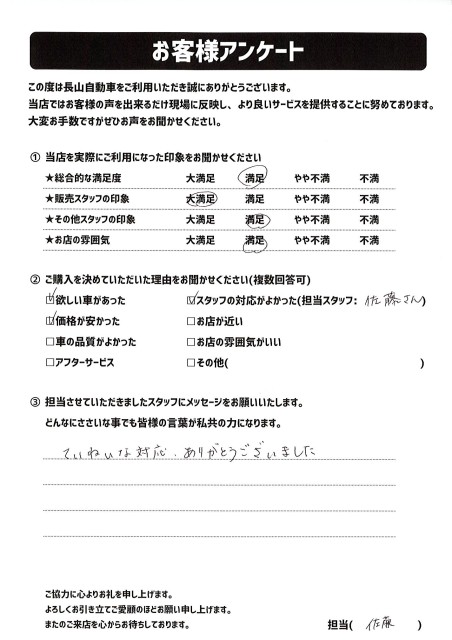 お客様アンケート
この度は長山自動車をご利用いただき誠にありがとうございます。
当店ではお客様の声を出来るだけ現場に反映し、より良いサービスを提供することに努めております。
大変お手数ですがぜひお声をお聞かせください。
① 当店を実際にご利用になった印象をお聞かせください
★総合的な満足度 大満足 満足 やや不満 不満
★販売スタッフの印象 大満足 満足 やや不満 不満
★その他スタッフの印象 大満足 満足 やや不満 不満
★お店の雰囲気 大満足 満足 やや不満 不満
② ご購入を決めていただいた理由をお聞かせください(複数回答可)
☑欲しい車があった ☑スタッフの対応がよかった(担当スタッフ: 佐藤さん)
☑価格が安かった □お店が近い
□車の品質がよかった □お店の雰囲気がいい
□アフターサービス □その他( )
③ 担当させていただきましたスタッフにメッセージをお願いいたします。
どんなにささいな事でも皆様の言葉が私共の力になります。
ていねいな対応、ありがとうございました
ご協力に心よりお礼を申し上げます。
よろしくお引き立てご愛顧のほどお願い申し上げます。
またのご来店を心からお待ちしております。 担当( 佐藤 )